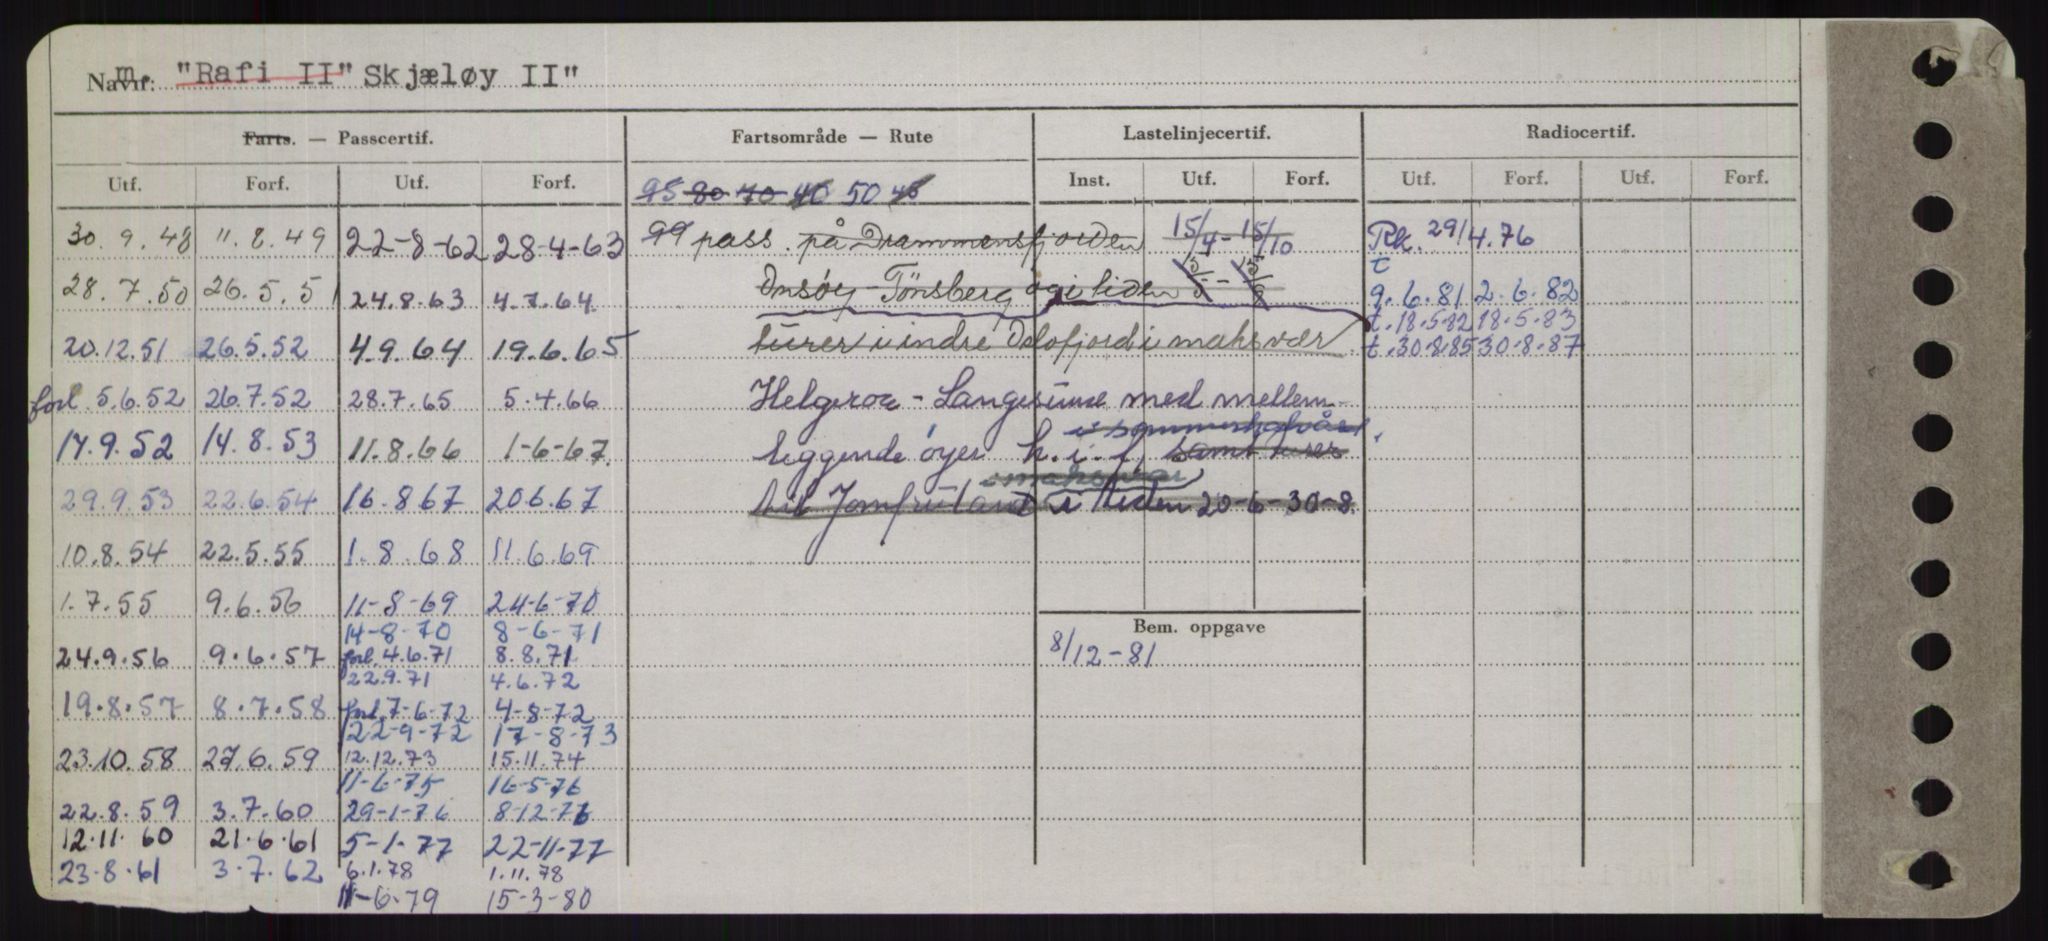 Navn: m. "Rafi II" Skjæløy II"
Farts. — Passcertif. Fartsområde — Rute Lastelinjecertif. Radiocertif.
Utf. Forf. Utf. Forf. Inst. Utf. Forf. Utf. Forf. Utf. Forf.
95 80 70 40 50 40
30.9.48 11.8.49 22-8-62 28-4-63 99 pass. på Drammensfjorden 15/4 - 15/10 Rk. 29/4.76
28.7.50 26.5.51 24.8.63 4.7.64 Onsøy - Tönsberg og i tiden 15/5 - 15/9 t 9.6.81 2.6.82
t.18.5.82 18.5.83
20.12.51 26.5.52 4.9.64 19.6.65 turer i indre Oslofjord i maksvær t.30.8.85 30.8.87
forl. 5.6.52 26.7.52 28.7.65 5.4.66 Helgeroa - Langesund med mellem-
i sommerhalvåret
17.9.52 14.8.53 11.8.66 1-6-67. liggende øyer h.i.f. samt turer
i maksvær
29.9.53 22.6.54 16.8.67 20.6.67 til Jomfruland i tiden 20-6-30-8.
10.8.54 22.5.55 1.8.68 11.6.69
1.7.55 9.6.56 11-8-69 24-6-70
14-8-70 8-6-71 Bem. oppgave
24.9.56 9.6.57 forl. 4.6.71 8.8.71 8/12-81
22.9.71 4.6.72
19.8.57 8.7.58 forl. 7-6-72 4-8-72
22-9-72 17-8-73
23.10.58 27.6.59 12.12.73 15.11.74
11-6-75 16-5-76
22.8.59 3.7.60 29-1-76 8-12-76
12.11.60 21.6.61 5-1-77 22-11-77
23.8.61 3.7.62 6.1.78 1.11.78
11-6-79 15-3-80